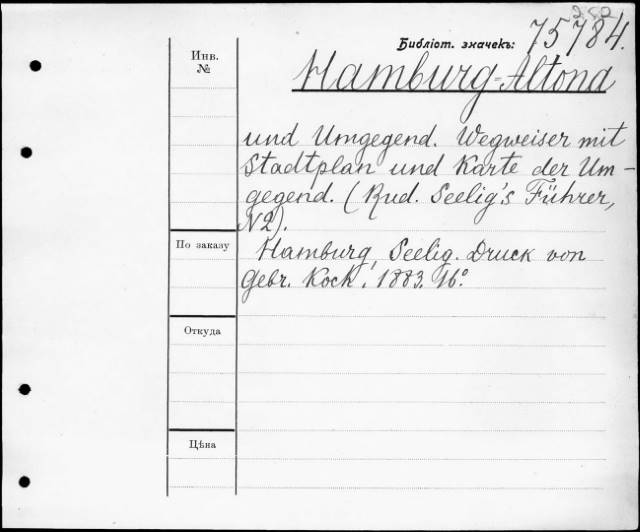 250
Библіот. значекъ: 75784.
Инв.
№
Hamburg-Altona
und Umgegend. Wegweiser mit
Stadtplan und Karte der Um-
gegend. (Rud. Seelig's Führer,
N2).
По заказу
Hamburg, Seelig. Druck von
Gebr. Kock. 1883. 16°
Откуда
Цѣна